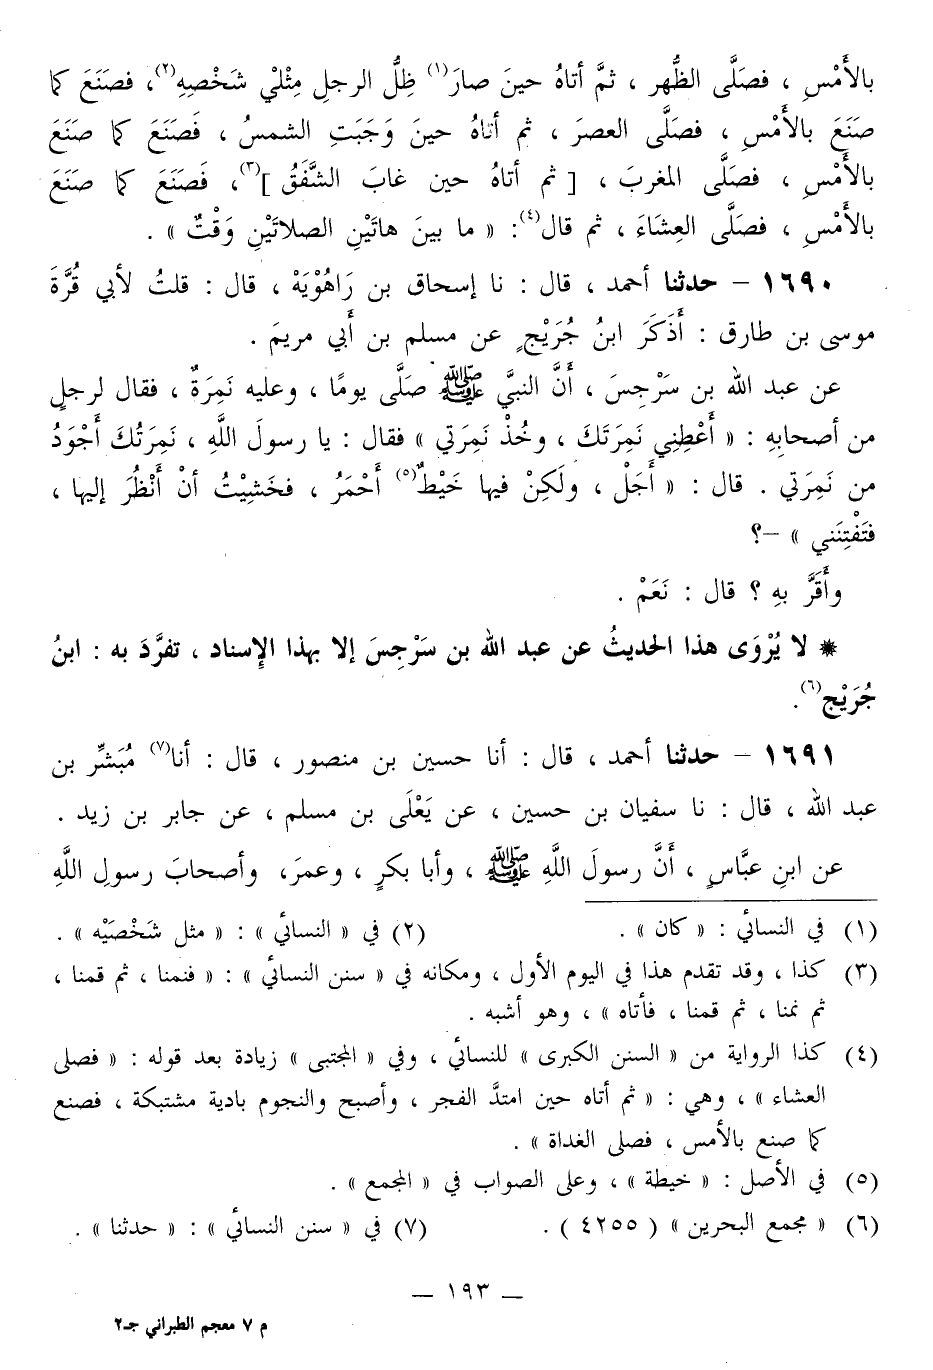 بالأَمْسِ ، فصَلَّى الظُّهر ، ثمَّ أتاهُ حينَ صارَ(١) ظِلُّ الرجلِ مِثْلَيْ شَخْصِهِ(٢)، فصَنَعَ كما
صَنَعَ بالأَمْسِ ، فصلَّى العصرَ ، ثم أتاهُ حينَ وَجَبَتِ الشمسُ ، فَصَنَعَ كما صَنَعَ
بالأَمْسِ ، فصلَّى المغربَ ، [ ثم أتاهُ حين غابَ الشَّفَقُ ](٣)، فَصَنَعَ كما صَنَعَ
بالأَمْسِ ، فصَلَّى العِشَاءَ ، ثم قال(٤): « ما بينَ هاتَيْنِ الصلاتَيْنِ وَقْتٌ » .
١٦٩٠ – حدثنا أحمد ، قال : نا إسحاق بن رَاهُوْيَهْ ، قال : قلتُ لأبي قُرَّةَ
موسى بن طارق : أَذَكَرَ ابنُ جُرَيْجٍ عن مسلم بن أَبي مريمَ .
عن عبد الله بن سَرْجِسَ ، أَنَّ النبيَّ ﷺ صَلَّى يومًا ، وعليه نَمِرَةٌ ، فقال لرجلٍ
من أصحابِهِ : « أَعْطِنِي نَمِرَتَكَ ، وخُذْ نَمِرَتي » فقال : يا رسولَ اللَّهِ ، نَمِرَتُكَ أَجْوَدُ
من نَمِرَتي . قال : « أَجَلْ ، ولَكِنْ فيها خَيْطٌ(٥) أَحْمَرُ ، فخَشِيْتُ أنْ أَنْظُرَ إليها ،
فتَفْتِنَني » –؟
وأَقَرَّ بهِ ؟ قال : نَعَمْ .
* لا يُرْوَى هذا الحديثُ عن عبد الله بن سَرْجِسَ إلا بهذا الإسناد ، تفرَّدَ به : ابنُ
جُرَيْجٍ(٦).
١٦٩١ – حدثنا أحمد ، قال : أنا حسين بن منصور ، قال : أنا(٧) مُبَشِّر بن
عبد الله ، قال : نا سفيان بن حسين ، عن يَعْلَى بن مسلم ، عن جابر بن زيد .
عن ابنِ عبَّاسٍ ، أَنَّ رسولَ اللَّهِ ﷺ ، وأبا بكرٍ ، وعمرَ، وأصحابَ رسولِ اللَّهِ
(١) في النسائي : « كان » . (٢) في « النسائي » : « مثل شَخْصَيْه » .
(٣) كذا ، وقد تقدم هذا في اليوم الأول ، ومكانه في « سنن النسائي » : « فنمنا ، ثم قمنا ،
ثم نمنا ، ثم قمنا ، فأتاه » ، وهو أشبه .
(٤) كذا الرواية من « السنن الكبرى » للنسائي ، وفي « المجتبى » زيادة بعد قوله : « فصلى
العشاء » ، وهي : « ثم أتاه حين امتدَّ الفجر ، وأصبح والنجوم بادية مشتبكة ، فصنع
كما صنع بالأمس ، فصلى الغداة » .
(٥) في الأصل : « خيطة » ، وعلى الصواب في « المجمع » .
(٦) « مجمع البحرين » ( ٤٢٥٥ ) . (٧) في « سنن النسائي » : « حدثنا » .
– ١٩٣ –
م ٧ معجم الطبراني جـ٢